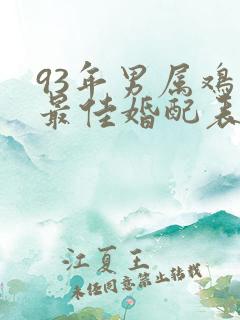 93年男属鸡
最佳婚配表
江夏王
未经同意禁止转载